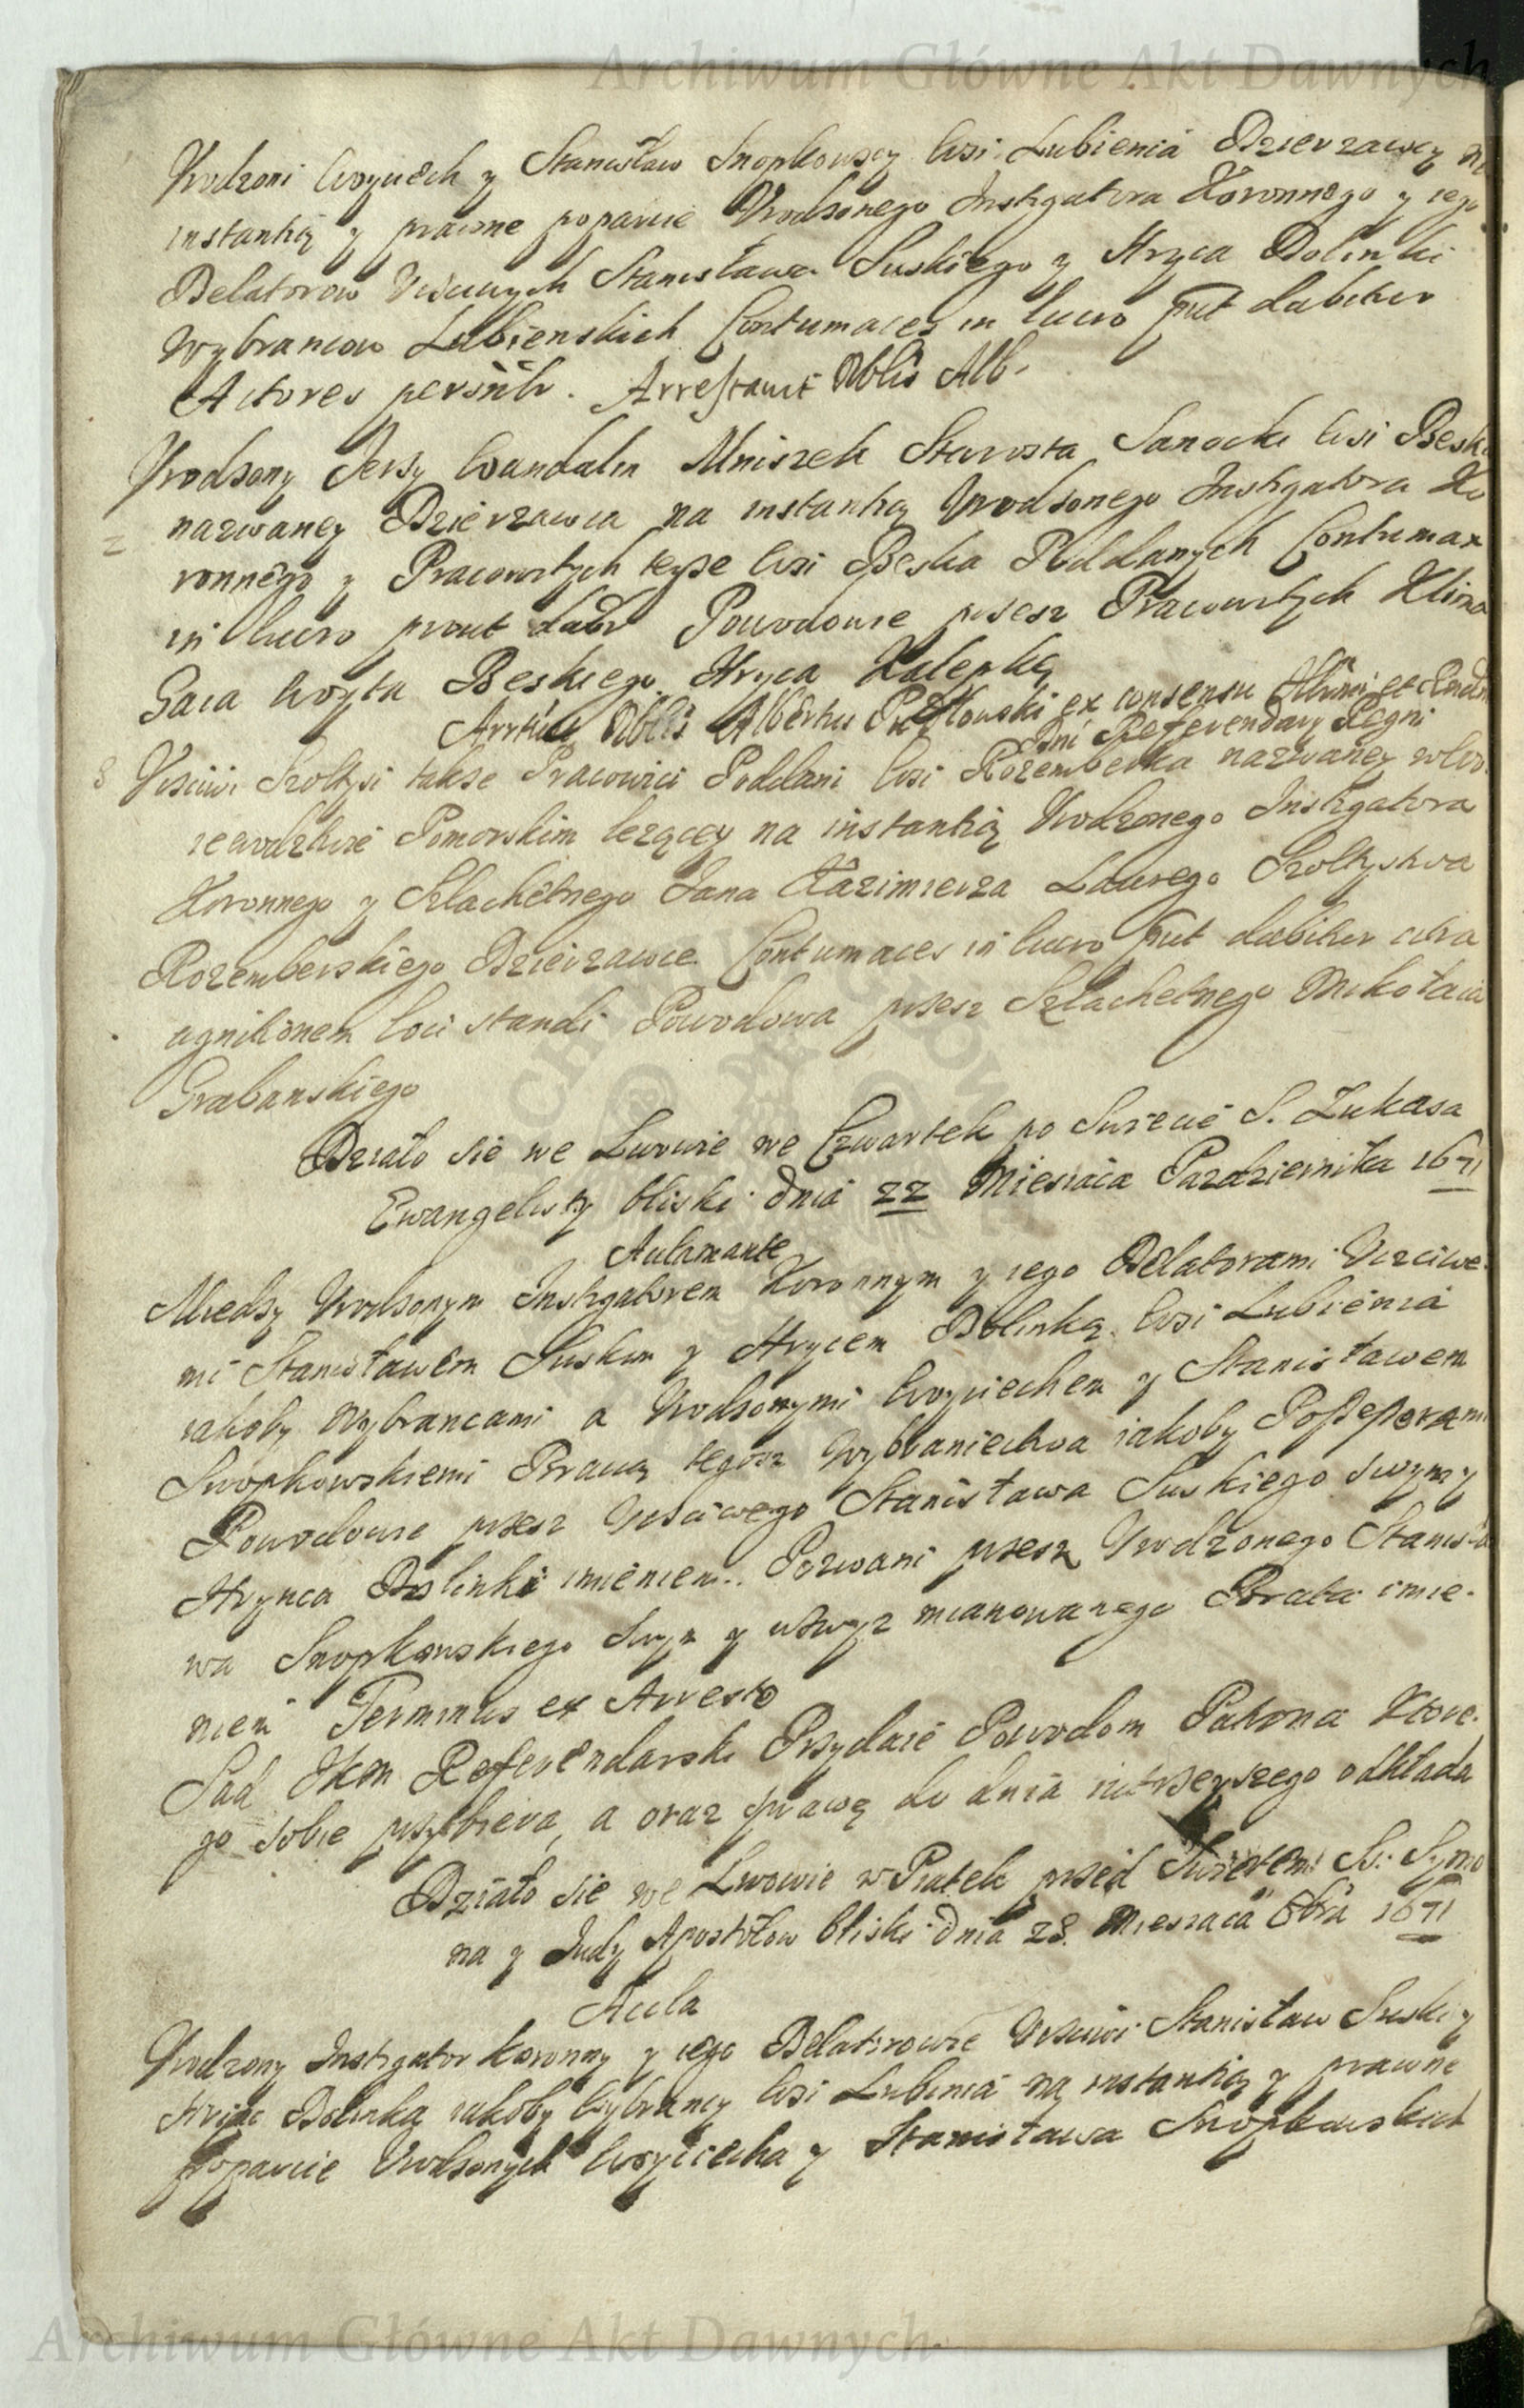 Archiwum Główne Akt Dawnych
Urodzoni Woyciech y Stanisław Snopkowscy Wsi Lubienia Dzierzawcy na
instantią y prawne poparcie Urodzonego Instigatora Koronnego y iego
Delatorow Uczciwych Stanisława Suskiego y Hryca Dolinki
Wybrancow Lubienskich Contumaces in lucro put dabitur
Actores person̄lr. Arrestavit Nblis Alb.
Urodzony Jerzy Wandalin Mniszek Starosta Sanocki Wsi Besk
2 nazwaney Dzierzawca na instantią Urodzonego Instigatora Ko
ronnego y Pracowitych teyze Wsi Beska Poddanych Contumax
in lucro prout dabr Powodowie przez Pracowitych Klima
Gaia Woyta Beskiego, Hryca Kalepkę
Nblis Albertus ex consensu Illrmi et
Dni Referendary Regni
8 Uczciwi Szołtysi takze Pracowici Poddani Wsi Rozemberka nazwaney w Wo
iewodztwie Pomorskim lezącey na instantią Urodzonego Instigatora
Koronnego y Szlachetnego Jana Kazimierza Szołtystwa
Rozemberskiego Dzierzawce Contumaces in lucro put dabitur citra
agnitionem loci standi Powodowa przez Szlachetnego Mikołaia
Grabanskiego
Działo sie we Lwowie we Czwartek po Swiecie S. Łukasza
Ewangelisty bliski dnia 22 Miesiaca Pazdziernika 1671
Miedzy Urodzonym Instigatorem Koronnym y iego Delatorami Uczciwe
mi Stanisławem Suskim y Hrycem Dolinką Wsi Lubienia
iakoby Wybrancami a Urodzonymi Woyciechem y Stanisławem
Snopkowskiemi Bracią tegosz Wybraniectwa iakoby Possessorami
Powodowie przez Uczciwego Stanisława Suskiego swym y
Hrynca Dolinki imieniem. Pozwani przez Urodzonego Stanisła
wa Snopkowskiego Swym y wzwysz mianowanego Brata imie-
niem Terminus ex Arresto
Sąd Ikm Referendarski Przydaie Powodom Patrona Ktore-
go sobie przybiera, a oraz sprawę do dnia iutrzeyszego odkłada
Działo sie we Lwowie w Piatek przed Swietem SS. Symo
na y Judy Apostołow bliski dnia 23. Miesiaca 8bra 1671
Aula
Urodzony Instigator Koronny y iego Delatorowie Uczciwi Stanisław Suski y
Hryc Dolinka iakoby Wybrancy Wsi Lubienia na instantią y prawne
poparcie Urodzonych Woyciecha y Stanisława Snopkowskich
Archiwum Główne Akt Dawnych